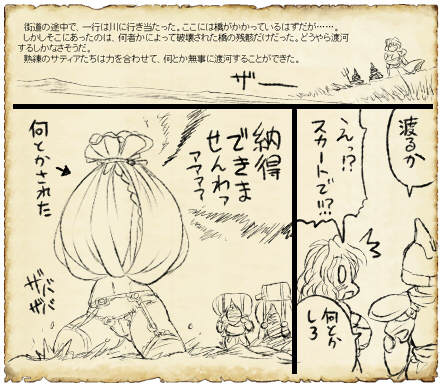 街道の途中で、一行は川に行き当たった。ここには橋がかかっているはずだが……。
しかしそこにあったのは、何者かによって破壊された橋の残骸だけだった。どうやら渡河
するしかなさそうだ。
熟練のサティアたちは力を合わせて、何とか無事に渡河することができた。
ザー
渡るか
えっ!?
スカートで!!?
何とか
しろ
納得
できま
せんわァ
アアアァ
何とかされた
ザバババ
ザザ